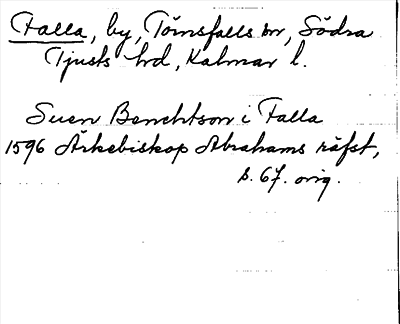 Falla, by, Törnsfalls sn, Södra
Tjusts hd, Kalmar l.
Suen Benchtson i Falla
1596 Ärkebiskop Abrahams räfst,
s. 67. orig.